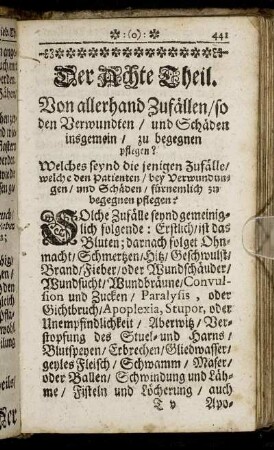 ❊:(o):❊ 441
Der Achte Theil.
Von allerhand Zufällen/so
den Verwundten/ und Schäden
insgemein/ zu begegnen
pflegen?
Welches seynd die jenigen Zufälle/
welche den Patienten/ bey Verwundun-
gen/ und Schäden/ fürnemlich zu
begegnen pflegen?
SOlche Zufälle seynd gemeinig-
lich folgende: Erstlich/ist das
Bluten; darnach folget Ohn-
macht/ Schmertzen/Hitz/ Geschwulst
Brand/Fieber/oder Wundschäuder/
Wundsucht/ Wundbräune/Convul-
sion und Zucken/ Paralysis, oder
Gichtbruch/Apoplexia, Stupor, oder
Unempfindlichkeit/ Aberwitz/ Ver-
stopfung des Stuel-und Harns/
Blutspeyen/Erbrechen/Gliedwasser/
geyles Fleisch/ Schwamm/ Maser/
oder Ballen/ Schwindung und Läh-
me/ Fisteln und Löcherung/ auch
T v Apo-